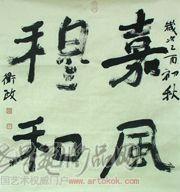 嘉風
乙酉初秋
穆和
衛政
国艺术权威门户 www.artokok.com